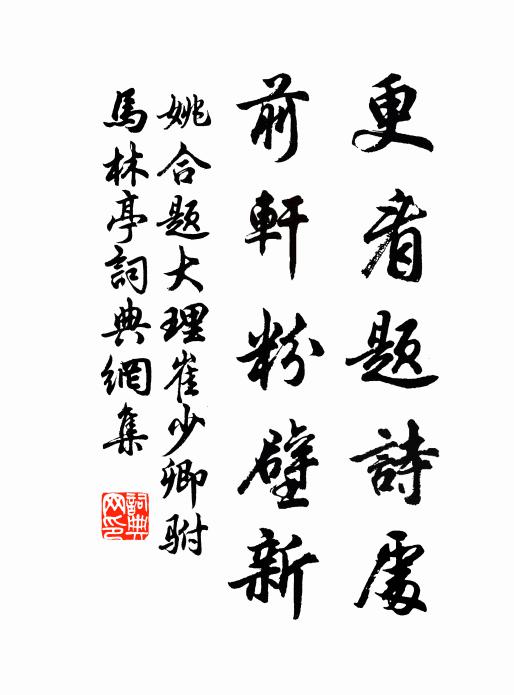 更看題詩處
前軒粉壁新
姚合題大理崔少卿駙
馬林亭詞典網集
詞典
網印